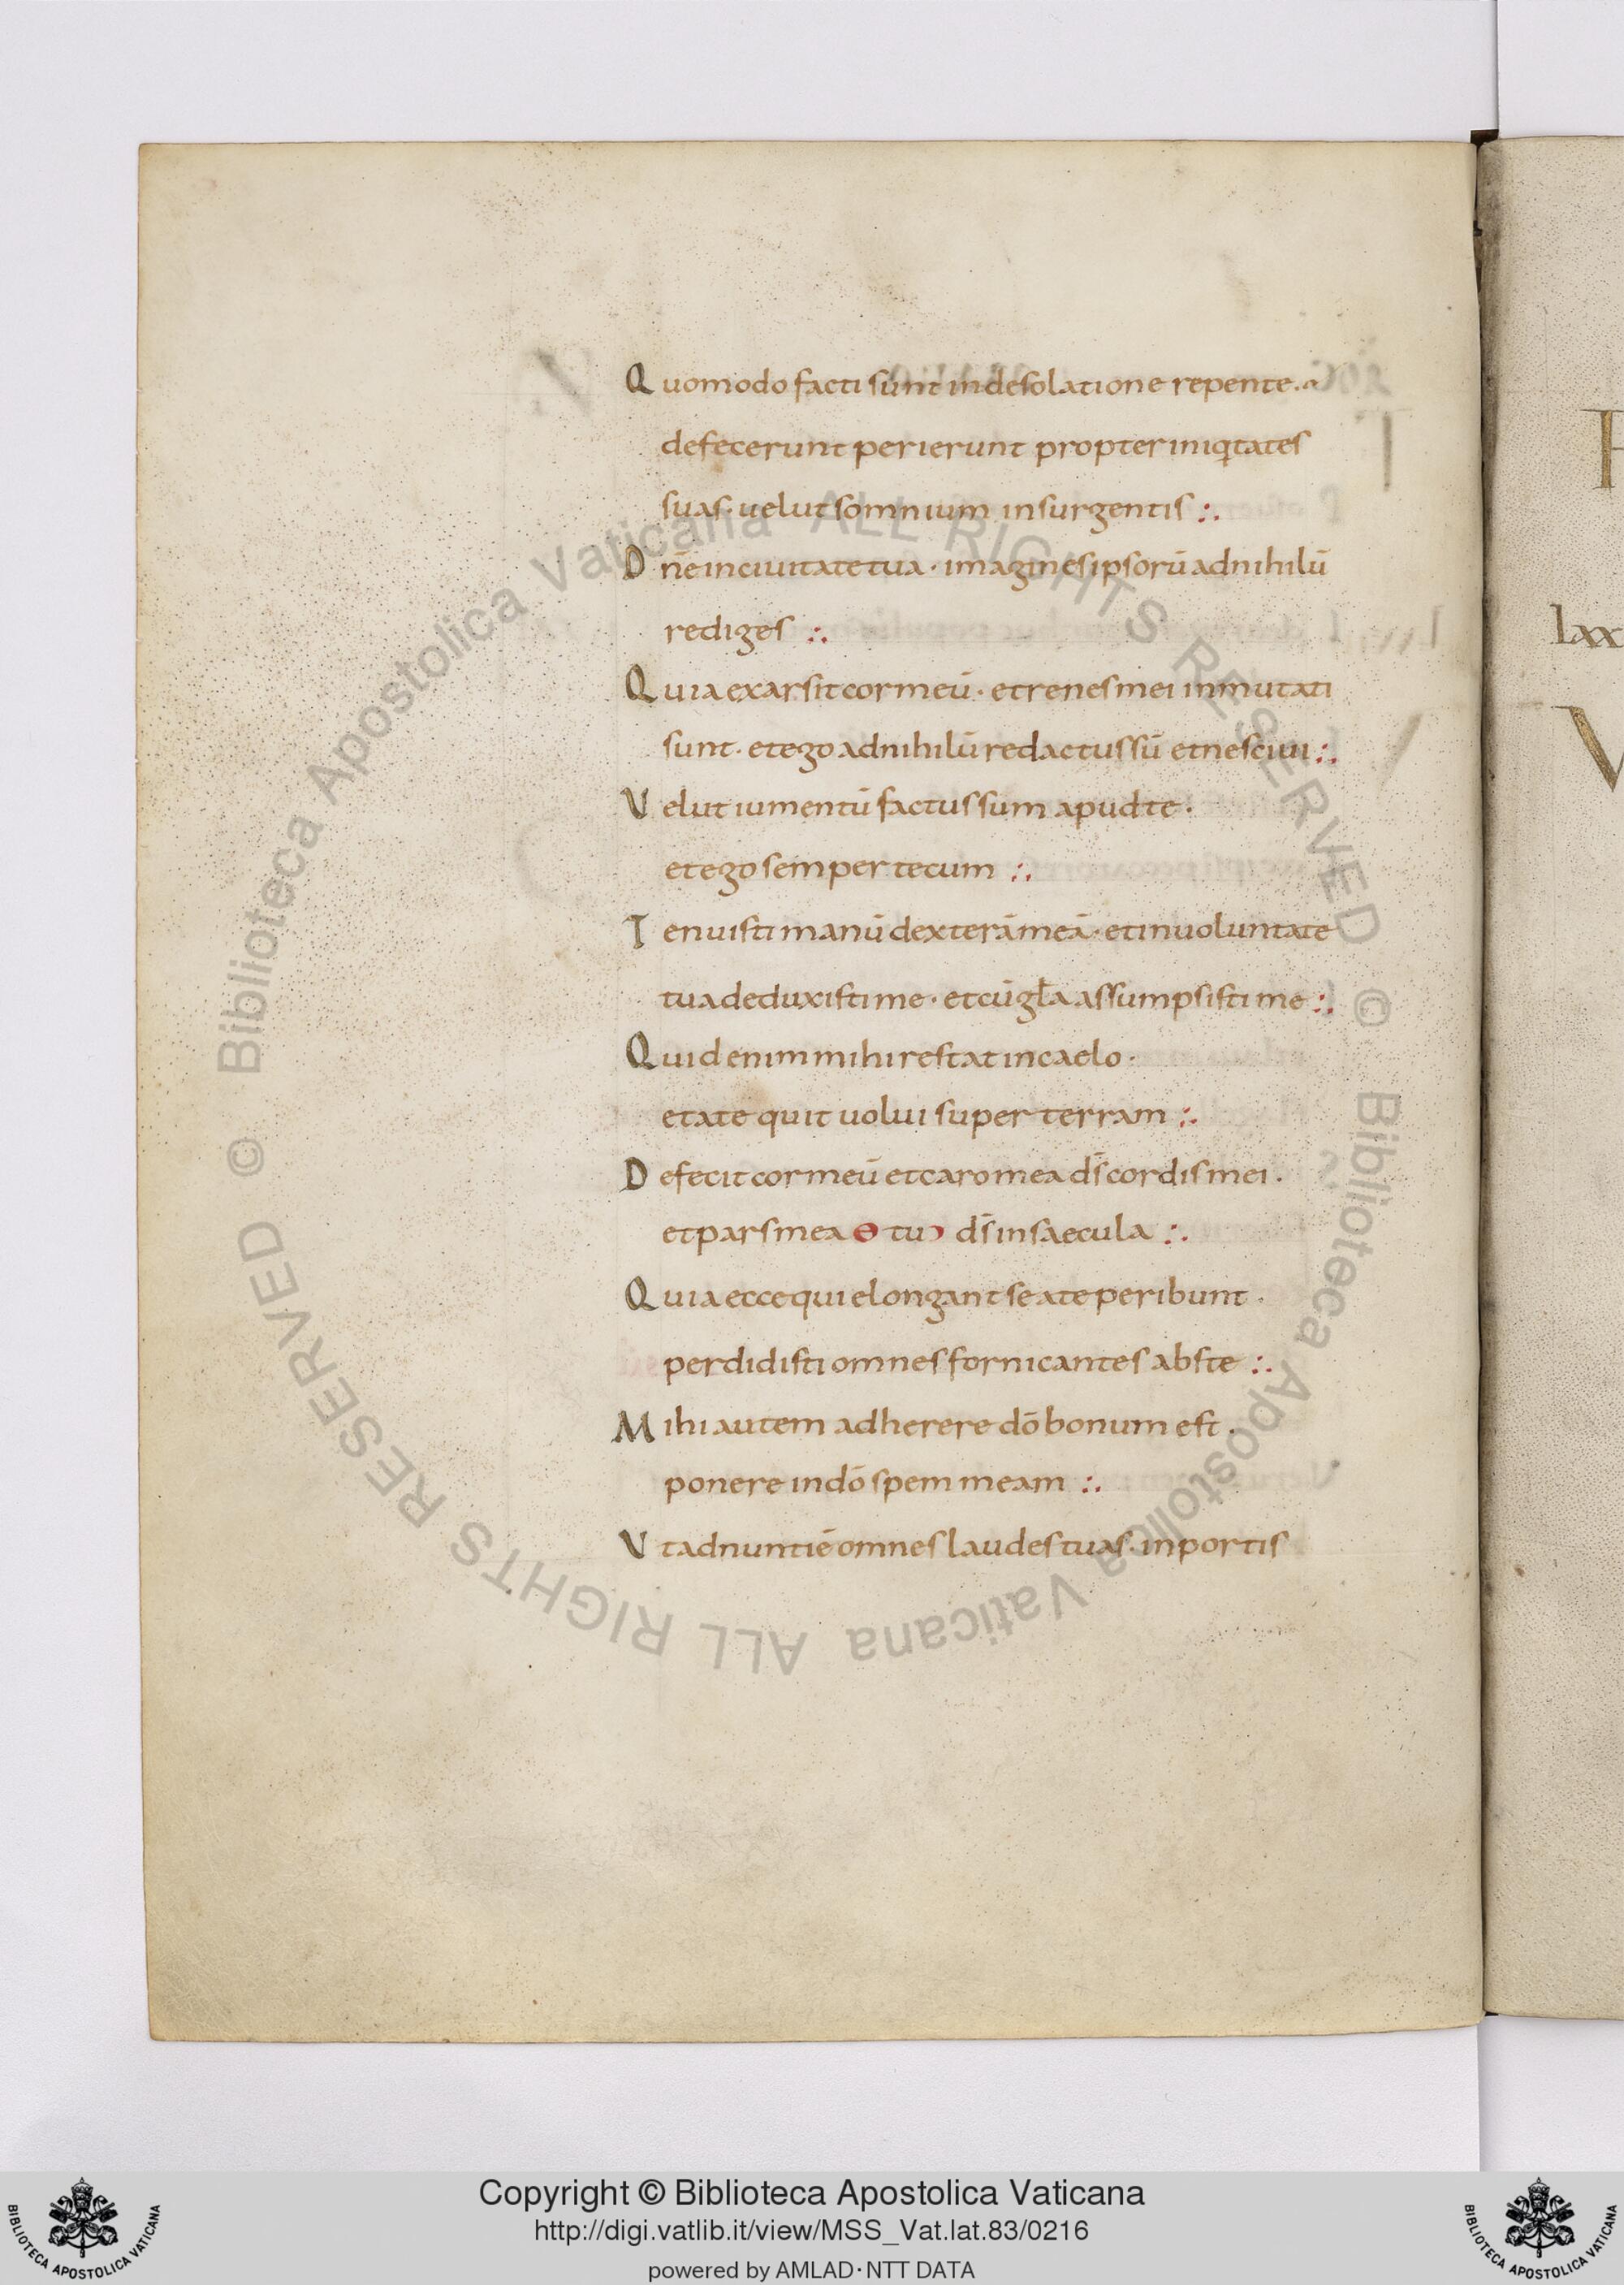 Quomodo facti sunt in desolatione repente.
defecerunt perierunt propter iniqtates
suas · uelut somnium insurgentis :.
Dn̄e in ciuitate tua · imagines ipsorū ad nihilū
rediges :.
Quia exarsit cor meū · et renes mei inmutati
sunt · et ego ad nihilū redactus sū et nesciui :.
Velut iumentū factus sum apud te ·
et ego semper tecum :.
Tenuisti manū dexterā meā · et in uoluntate
tua deduxisti me · et cū gl̄a assumpsisti me :.
Quid enim mihi restat in caelo ·
et a te quit uolui super terram :.
Defecit cor meū et caro mea ds̄ cordis mei ·
et pars mea ɵ tuɔ ds̄ in saecula :.
Quia ecce qui elongant se a te peribunt ·
perdidisti omnes fornicantes abs te :.
Mihi autem adherere dō bonum est ·
ponere in dō spem meam :.
Vt adnuntiē omnes laudes tuas · in portis
Lxx
V
© Biblioteca Apostolica Vaticana ALL RIGHTS RESERVED © Biblioteca Apostolica Vaticana ALL RIGHTS RESERVED
Copyright © Biblioteca Apostolica Vaticana
http://digi.vatlib.it/view/MSS_Vat.lat.83/0216
powered by AMLAD·NTT DATA
BIBLIOTECA APOSTOLICA VATICANA
BIBLIOTECA APOSTOLICA VATICANA